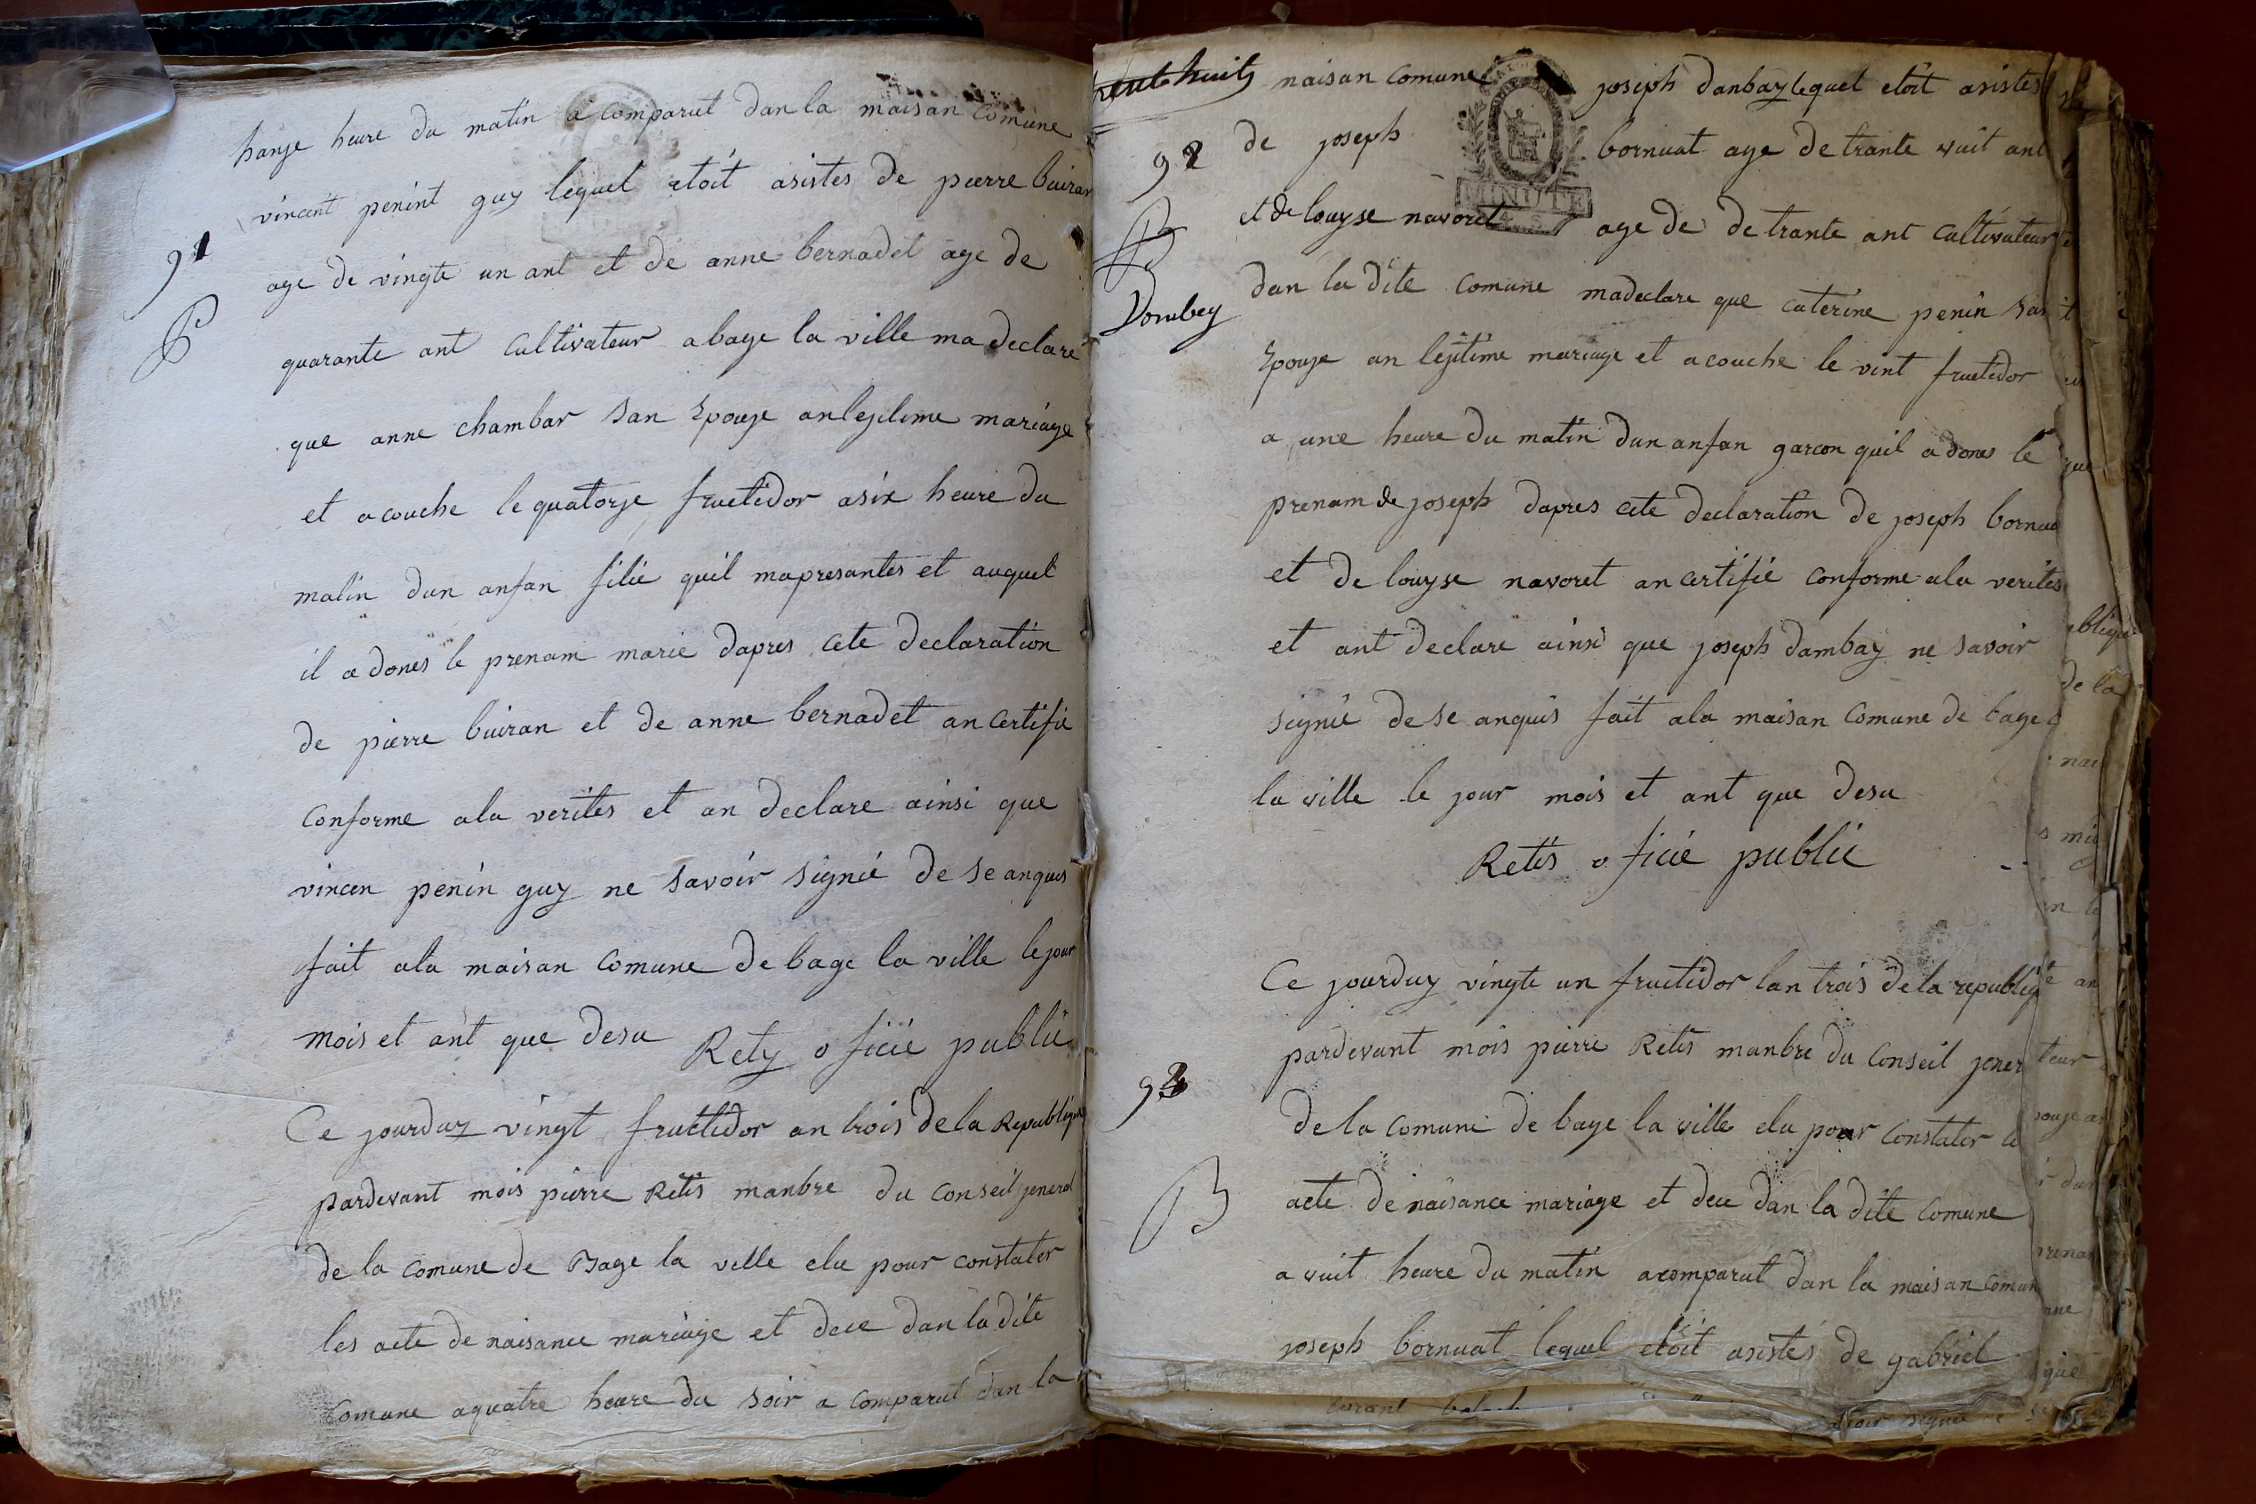 hanze heure du matin a comparut dan la maisan comune
vincent penint guy lequel etoit asistes de pierre buiran
91
age de vingte un ant et de anne bernadet age de
quarante ant cultivateur a bage la ville ma declare
que anne chambar san Epouze an lejitime mariage
et acouche le quatorze fructidor a six heure du
matin dun anfan filie quil mapresantes et auquel
il a dones le prenam marie dapres cete declaration
de pierre buiran et de anne bernadet an certifie
conforme ala verites et an declare ainsi que
vincen penin guy ne savoir signié de se anquis
fait ala maisan comune de bage la ville le jour
mois et ant que desu Rety oficié publié
Ce jourduy vingt fructidor an trois de la Republique
pardevant mois pierre Retis manbre du conseil jeneral
de la comune de Bage la ville elu pour constater
les acte de naisance mariage et dece dan la dite
comune a quatre heure du soir a comparut dan la
trente huit
naisan comune joseph danbay lequel etoit asistes
92
de joseph bornuat age de trante wuit ant
MINUTE
et de louyse navoret age de de trante ant cultivateur
Dombey
dan la dite comune madeclare que caterine penin san
Epouze an lejitime mariage et acouche le vint fructidor
a une heure du matin dun anfan garcon quil a dones le
prenam de joseph dapres cete declaration de joseph bornua
et de louyse navoret an certifié conforme ala verites
et ant declare ainsi que joseph dambay ne savoir
signié de se anquis fait ala maisan comune de bage
la ville le jour mois et ant que desu
Retis oficié publié
Ce jourduy vingte un fructidor lan trois de la republiq
pardevant mois pierre Retis manbre du conseil jener
93
de la comune de bage la ville elu pour constater le
acte de naisance mariage et dece dan la dite comune
a wuit heure du matin acomparut dan la maisan comun
joseph bornuat lequel etoit asistes de gabriel